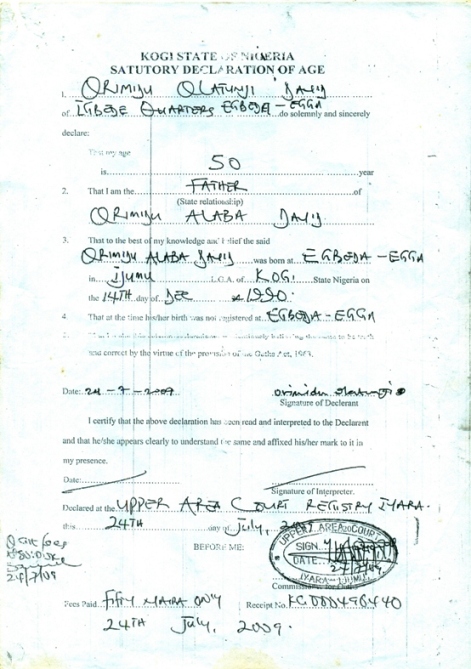 KOGI STATE OF NIGERIA
SATUTORY DECLARATION OF AGE
1. ORIMIDU OLATUNJI DAVID
of EGBEDE QUARTERS EGBEDA-EGGA do solemnly and sincerely
declare:
That my age
is 50 year
2. That I am the FATHER of
(State relationship)
ORIMIDU ALABA DAVID
3. That to the best of my knowledge and belief the said
ORIMIDU ALABA DAVID was born at EGBEDA-EGGA
in IJUMU L.G.A. of KOGI State Nigeria on
the 14TH day of DEC 1990.
4. That at the time his/her birth was not registered at EGBEDA-EGGA
and correct by the virtue of the provision of the Oaths Act, 1963.
Date: 24-7-2009
Signature of Declerant
I certify that the above declaration has been read and interpreted to the Declarent
and that he/she appears clearly to understand the same and affixed his/her mark to it in
my presence.
Date:
Signature of Interpreter.
Declared at the UPPER AREA COURT REGISTRY IYARA.
this 24TH day of July,
BEFORE ME:
UPPER AREA COURT
SIGN
DATE 24/7/09
IYARA-IJUMU
Fees Paid FIFTY NAIRA ONLY Receipt No. KG000490440
24TH July, 2009.
24/7/09